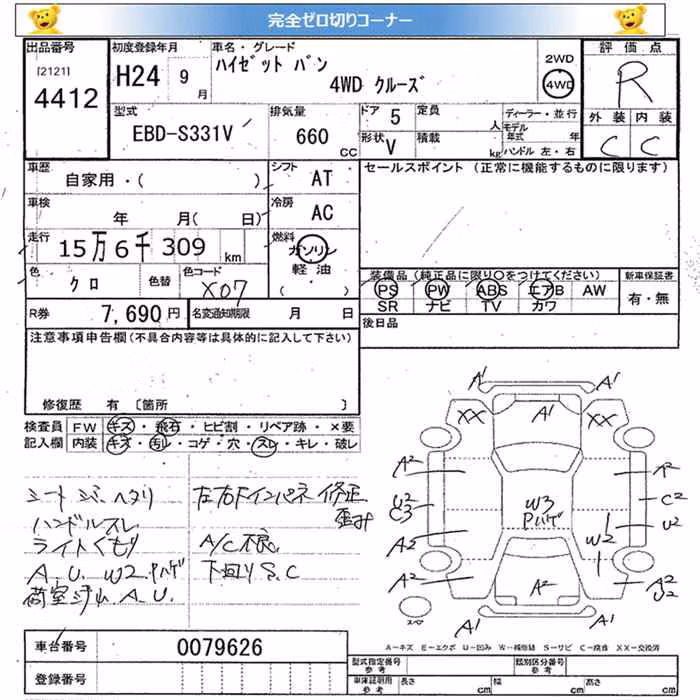 完全ゼロ切りコーナー
出品番号
[2121]
4412
初度登録年月
H24 9月
車名・グレード
ハイゼット バン
4WD クルーズ
2WD
4WD
評価点
R
外装 内装
C C
型式
EBD-S331V
排気量
660
CC
ドア 5
形状 V
定員
人
積載
kg
ディーラー・並行
モデル
年式 年
ハンドル 左・右
車歴
自家用・( )
シフト
AT
車検
年 月( 日)
冷房
AC
走行
15万6千309 km
燃料
ガソリン
軽油
( )
色
クロ
色替
色コード
X07
セールスポイント (正常に機能するものに限ります)
装備品(純正品に限り○をつけてください)
PS PW ABS エアB AW
SR ナビ TV カワ
新車保証書
有・無
後日品
R券
7,690 円
名変通知期限
月 日
注意事項申告欄(不具合内容等は具体的に記入して下さい)
修復歴 有 〔箇所 〕
検査員
記入欄
FW キズ・飛石・ヒビ割・リペア跡・×要
内装 キズ・汚レ・コゲ・穴・スレ・キレ・破レ
シートシミ、ヘタリ
ハンドルスレ
ライトくもり
A.U. W2.Pハゲ
荷室汚れ A.U.
左右ドインパネ 修正
歪み
A/C不良
下回りS.C
A1 A1
XX A1 XX
A2 A2
U2 C3 W3 Pハゲ C2
W2 U2
A2
A2 A2 A2 U2
スペア
A1 A1
A-キズ E-エクボ U-凹み W-補修跡 S-サビ C-腐食 XX-交換済
車台番号
0079626
登録番号
型式指定番号
参考
類別区分番号
参考
車庫証明用
参考
長さ cm
幅 cm
高さ cm